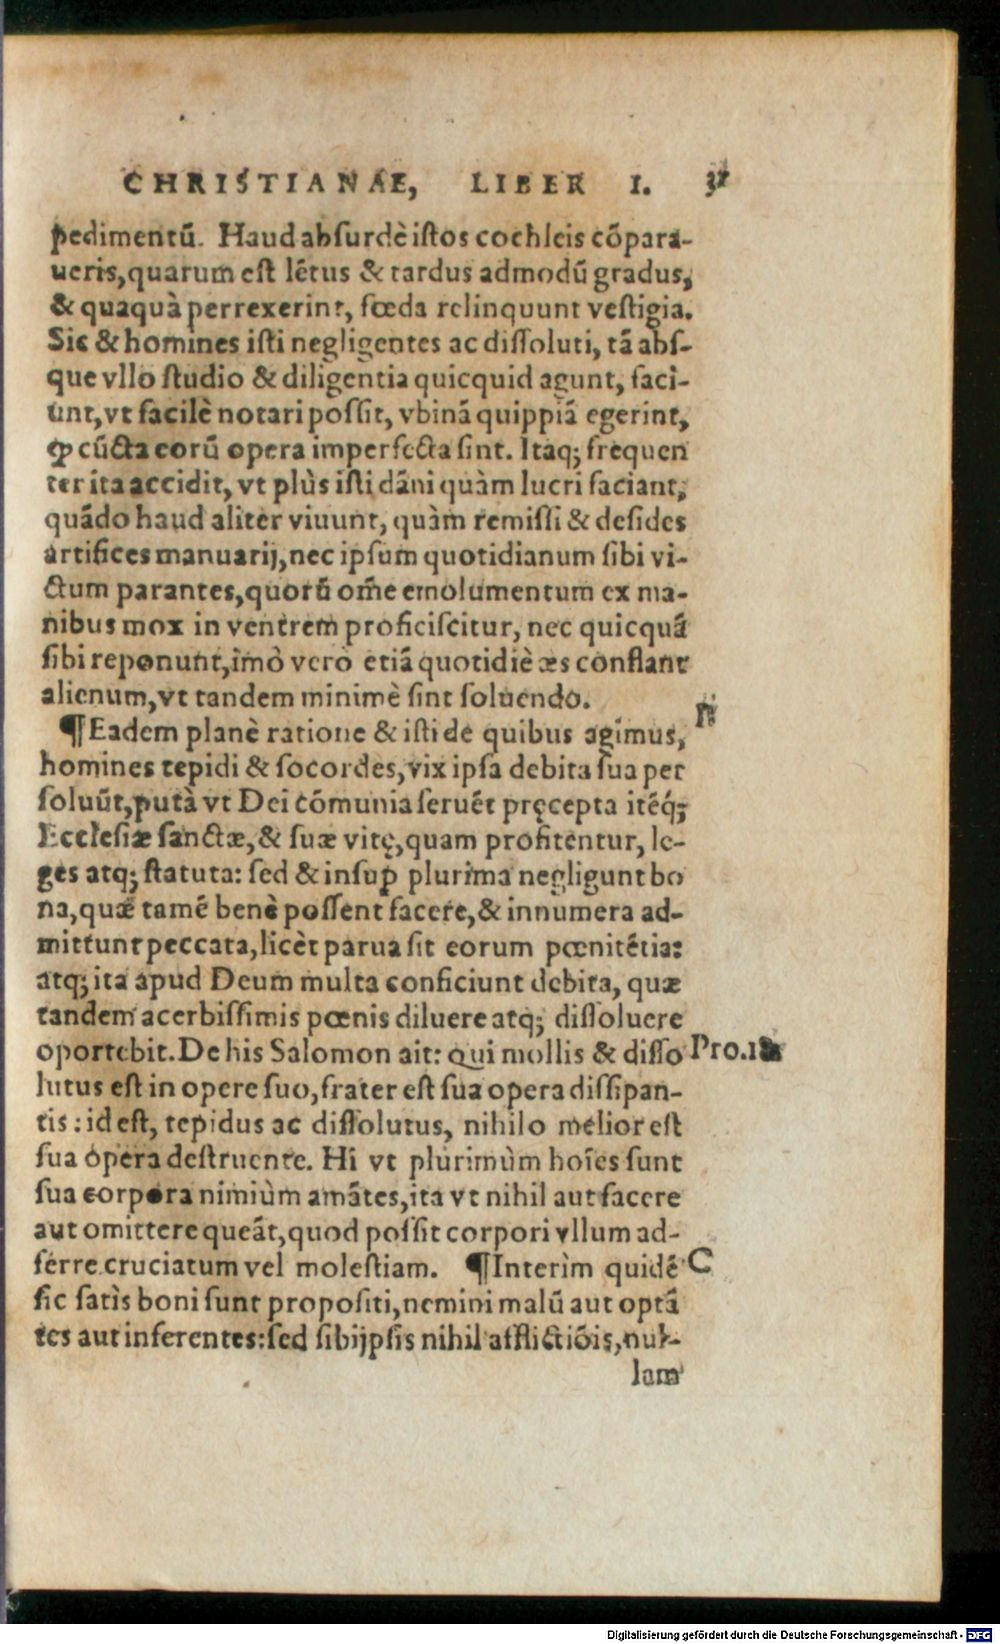 CHRISTIANAE, LIBER I. 31
pedimentũ. Haud absurdè istos cochleis cõpara-
ueris, quarum est lẽtus & tardus admodũ gradus,
& quaquà perrexerint, fœda relinquunt vestigia.
Sic & homines isti negligentes ac dissoluti, tã abs-
que vllo studio & diligentia quicquid agunt, faci-
unt, vt facilè notari possit, vbinã quippiã egerint,
ꝙ cũcta eorũ opera imperfecta sint. Itaq; frequen
ter ita accidit, vt plùs isti dãni quàm lucri faciant,
quãdo haud aliter viuunt, quàm remissi & desides
artifices manuarij, nec ipsum quotidianum sibi vi-
ctum parantes, quorũ om̃e emolumentum ex ma-
nibus mox in ventrem proficiscitur, nec quicquã
sibi reponunt, imò verò etiã quotidiè æs conflant
alienum, vt tandem minimè sint soluendo.
¶Eadem planè ratione & isti de quibus agimus,
homines tepidi & socordes, vix ipsa debita sua per
soluũt, putà vt Dei cõmunia seruẽt pręcepta itẽq́;
Ecclesiæ sanctæ, & suæ vitę, quam profitentur, le-
ges atq; statuta: sed & insuꝑ plurima negligunt bo
na, quæ tamẽ benè possent facere, & innumera ad-
mittunt peccata, licèt parua sit eorum pœnitẽtia:
atq; ita apud Deum multa conficiunt debita, quæ
tandem acerbissimis pœnis diluere atq; dissoluere
oportebit. De his Salomon ait: Qui mollis & disso Pro.18
lutus est in opere suo, frater est sua opera dissipan-
tis: id est, tepidus ac dissolutus, nihilo melior est
sua opera destruente. Hi vt plurimùm hoĩes sunt
sua corpora nimiùm amãtes, ita vt nihil aut facere
aut omittere queãt, quod possit corpori vllum ad-
ferre cruciatum vel molestiam. ¶Interìm quidẽ C
sic satìs boni sunt propositi, nemini malũ aut optã
tes aut inferentes: sed sibijpsis nihil afflictiõis, nul-
lam
Digitalisierung gefördert durch die Deutsche Forschungsgemeinschaft - DFG